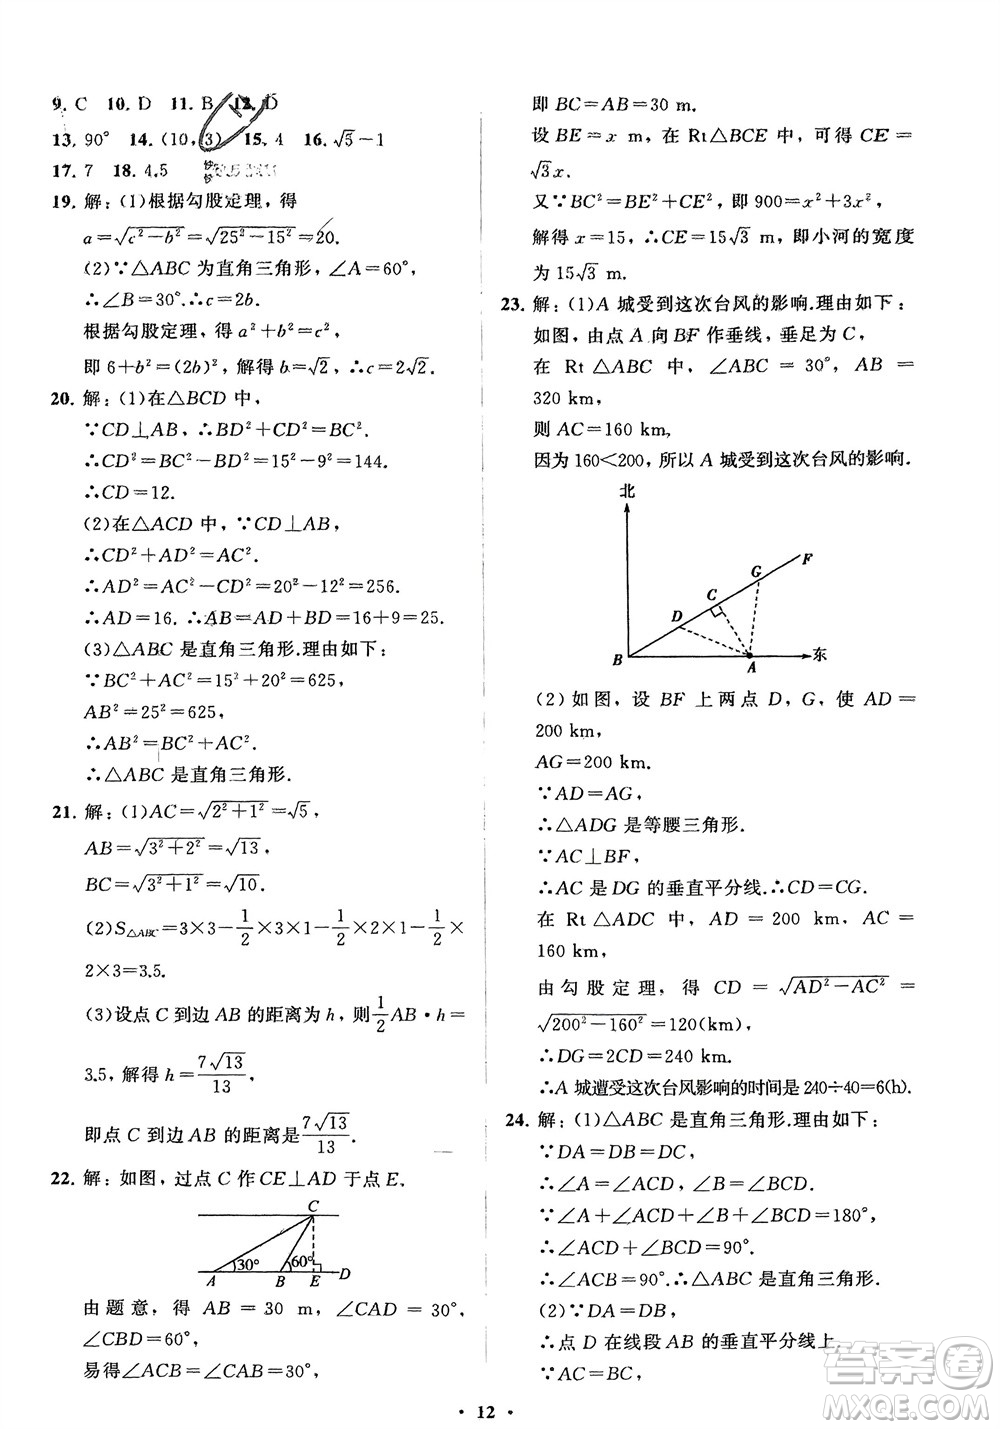 9. C 10. D 11. B 12. D
13. 90° 14. (10,3) 15. 4 16. √5−1
17. 7 18. 4.5
19. 解:(1)根据勾股定理,得
a=√(c²−b²)=√(25²−15²)=20.
(2)∵△ABC 为直角三角形,∠A=60°,
∴∠B=30°.∴c=2b.
根据勾股定理,得 a²+b²=c²,
即 6+b²=(2b)²,解得 b=√2.∴c=2√2.
20. 解:(1)在△BCD 中,
∵CD⊥AB,∴BD²+CD²=BC².
∴CD²=BC²−BD²=15²−9²=144.
∴CD=12.
(2)在△ACD 中,∵CD⊥AB,
∴CD²+AD²=AC².
∴AD²=AC²−CD²=20²−12²=256.
∴AD=16.∴AB=AD+BD=16+9=25.
(3)△ABC 是直角三角形.理由如下:
∵BC²+AC²=15²+20²=625,
AB²=25²=625,
∴AB²=BC²+AC².
∴△ABC 是直角三角形.
21. 解:(1)AC=√(2²+1²)=√5,
AB=√(3²+2²)=√13,
BC=√(3²+1²)=√10.
(2)S△ABC=3×3−1/2×3×1−1/2×2×1−1/2×
2×3=3.5.
(3)设点 C 到边 AB 的距离为 h,则1/2AB·h=
3.5,解得 h=7√13/13,
即点 C 到边 AB 的距离是7√13/13.
22. 解:如图,过点 C 作 CE⊥AD 于点 E.
C
30° 60°
A B E D
由题意,得 AB=30 m,∠CAD=30°,
∠CBD=60°,
易得∠ACB=∠CAB=30°,
即 BC=AB=30 m.
设 BE=x m,在 Rt△BCE 中,可得 CE=
√3x.
又∵BC²=BE²+CE²,即 900=x²+3x²,
解得 x=15,∴CE=15√3 m,即小河的宽度
为 15√3 m.
23. 解:(1)A 城受到这次台风的影响.理由如下:
如图,由点 A 向 BF 作垂线,垂足为 C,
在 Rt △ABC 中,∠ABC=30°,AB=
320 km,
则 AC=160 km,
因为 160<200,所以 A 城受到这次台风的影响.
北
F
G
C
D
B A 东
(2)如图,设 BF 上两点 D,G,使 AD=
200 km,
AG=200 km.
∵AD=AG,
∴△ADG 是等腰三角形.
∵AC⊥BF,
∴AC 是 DG 的垂直平分线.∴CD=CG.
在 Rt △ADC 中,AD=200 km,AC=
160 km,
由勾股定理,得 CD=√(AD²−AC²)=
√(200²−160²)=120(km),
∴DG=2CD=240 km.
∴A 城遭受这次台风影响的时间是 240÷40=6(h).
24. 解:(1)△ABC 是直角三角形.理由如下:
∵DA=DB=DC,
∴∠A=∠ACD,∠B=∠BCD.
∵∠A+∠ACD+∠B+∠BCD=180°,
∴∠ACD+∠BCD=90°.
∴∠ACB=90°.∴△ABC 是直角三角形.
(2)∵DA=DB,
∴点 D 在线段 AB 的垂直平分线上.
∵AC=BC,
• 12 •
答案圈
MXQE.COM